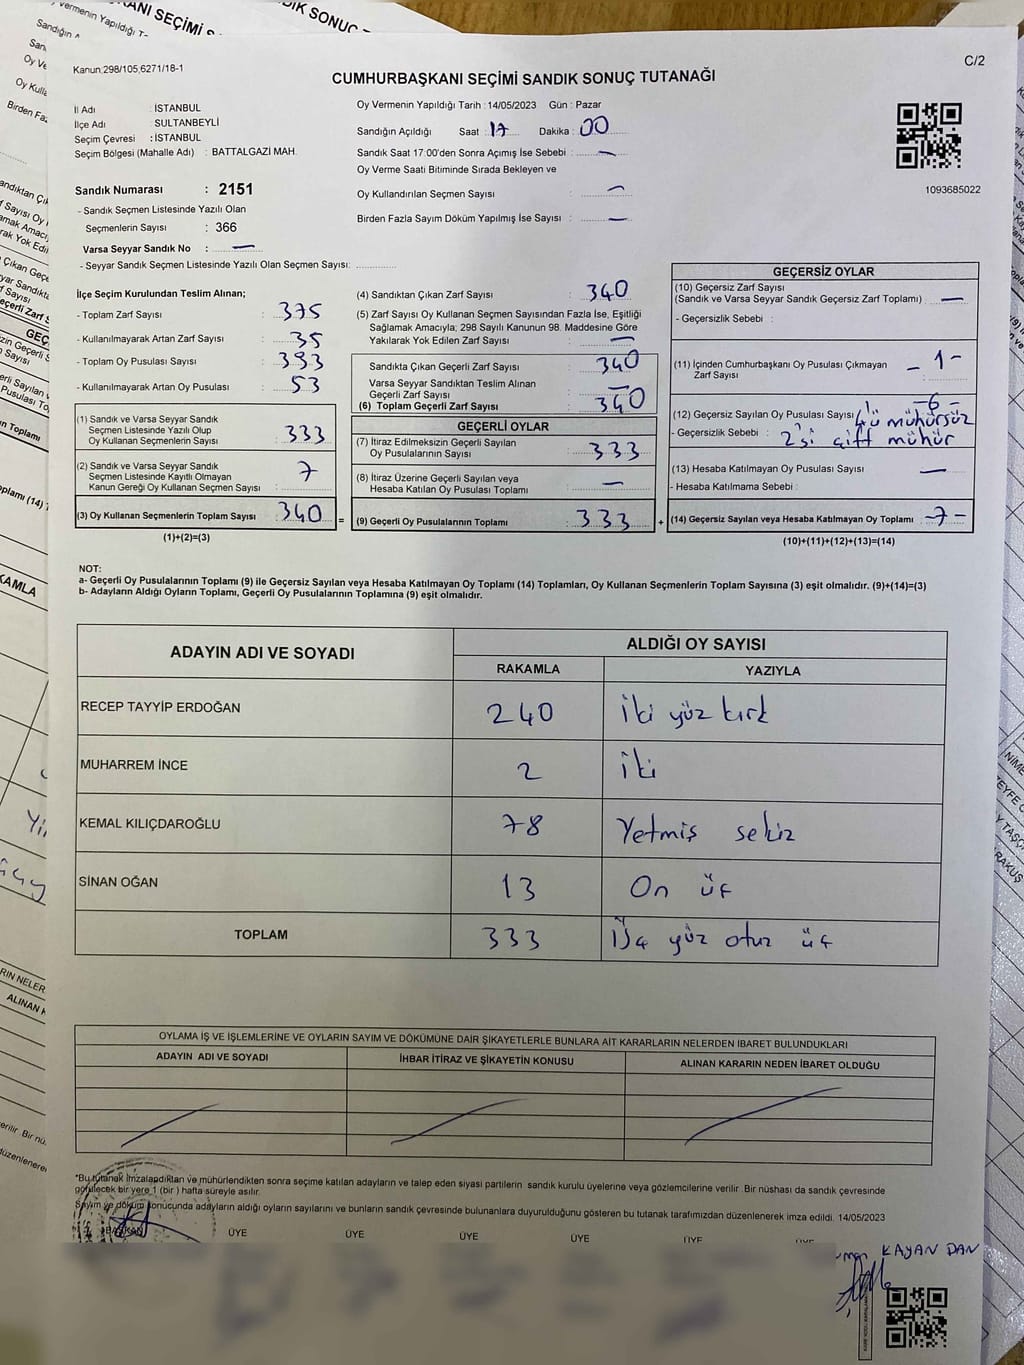 Kanun;298/105,6271/18-1
C/2
CUMHURBAŞKANI SEÇİMİ SANDIK SONUÇ TUTANAĞI
İl Adı : İSTANBUL
İlçe Adı : SULTANBEYLİ
Seçim Çevresi : İSTANBUL
Seçim Bölgesi (Mahalle Adı) : BATTALGAZİ MAH.
Oy Vermenin Yapıldığı Tarih : 14/05/2023 Gün : Pazar
Sandığın Açıldığı Saat : 17 Dakika : 00
Sandık Saat 17:00'den Sonra Açımış İse Sebebi : —
Oy Verme Saati Bitiminde Sırada Bekleyen ve
Oy Kullandırılan Seçmen Sayısı : —
Birden Fazla Sayım Döküm Yapılmış İse Sayısı : —
1093685022
Sandık Numarası : 2151
- Sandık Seçmen Listesinde Yazılı Olan
Seçmenlerin Sayısı : 366
Varsa Seyyar Sandık No : —
- Seyyar Sandık Seçmen Listesinde Yazılı Olan Seçmen Sayısı: ..............
İlçe Seçim Kurulundan Teslim Alınan;
- Toplam Zarf Sayısı : 375
- Kullanılmayarak Artan Zarf Sayısı : 35
- Toplam Oy Pusulası Sayısı : 393
- Kullanılmayarak Artan Oy Pusulası : 53
(1) Sandık ve Varsa Seyyar Sandık
Seçmen Listesinde Yazılı Olup
Oy Kullanan Seçmenlerin Sayısı : 333
(2) Sandık ve Varsa Seyyar Sandık
Seçmen Listesinde Kayıtlı Olmayan
Kanun Gereği Oy Kullanan Seçmen Sayısı : 7
(3) Oy Kullanan Seçmenlerin Toplam Sayısı : 340
(1)+(2)=(3)
=
(4) Sandıktan Çıkan Zarf Sayısı : 340
(5) Zarf Sayısı Oy Kullanan Seçmen Sayısından Fazla İse, Eşitliği
Sağlamak Amacıyla; 298 Sayılı Kanunun 98. Maddesine Göre
Yakılarak Yok Edilen Zarf Sayısı : —
Sandıkta Çıkan Geçerli Zarf Sayısı : 340
Varsa Seyyar Sandıktan Teslim Alınan
Geçerli Zarf Sayısı : —
(6) Toplam Geçerli Zarf Sayısı : 340
GEÇERLİ OYLAR
(7) İtiraz Edilmeksizin Geçerli Sayılan
Oy Pusulalarının Sayısı : 333
(8) İtiraz Üzerine Geçerli Sayılan veya
Hesaba Katılan Oy Pusulası Toplamı : —
(9) Geçerli Oy Pusulalarının Toplamı : 333
+
GEÇERSİZ OYLAR
(10) Geçersiz Zarf Sayısı
(Sandık ve Varsa Seyyar Sandık Geçersiz Zarf Toplamı) : —
- Geçersizlik Sebebi :
(11) İçinden Cumhurbaşkanı Oy Pusulası Çıkmayan
Zarf Sayısı : - 1 -
(12) Geçersiz Sayılan Oy Pusulası Sayısı : - 6 -
- Geçersizlik Sebebi : 4ü mühürsüz
2'si çift mühür
(13) Hesaba Katılmayan Oy Pusulası Sayısı : —
- Hesaba Katılmama Sebebi :
(14) Geçersiz Sayılan veya Hesaba Katılmayan Oy Toplamı : - 7 -
(10)+(11)+(12)+(13)=(14)
NOT:
a- Geçerli Oy Pusulalarının Toplamı (9) ile Geçersiz Sayılan veya Hesaba Katılmayan Oy Toplamı (14) Toplamları, Oy Kullanan Seçmenlerin Toplam Sayısına (3) eşit olmalıdır. (9)+(14)=(3)
b- Adayların Aldığı Oyların Toplamı, Geçerli Oy Pusulalarının Toplamına (9) eşit olmalıdır.
ADAYIN ADI VE SOYADI ALDIĞI OY SAYISI
RAKAMLA YAZIYLA
RECEP TAYYİP ERDOĞAN 240 İki yüz kırk
MUHARREM İNCE 2 İki
KEMAL KILIÇDAROĞLU 78 Yetmiş sekiz
SİNAN OĞAN 13 On üç
TOPLAM 333 Üç yüz otuz üç
OYLAMA İŞ VE İŞLEMLERİNE VE OYLARIN SAYIM VE DÖKÜMÜNE DAİR ŞİKAYETLERLE BUNLARA AİT KARARLARIN NELERDEN İBARET BULUNDUKLARI
ADAYIN ADI VE SOYADI İHBAR İTİRAZ VE ŞİKAYETİN KONUSU ALINAN KARARIN NEDEN İBARET OLDUĞU
*Bu tutanak İmzalandıktan ve mühürlendikten sonra seçime katılan adayların ve talep eden siyasi partilerin sandık kurulu üyelerine veya gözlemcilerine verilir. Bir nüshası da sandık çevresinde
görülecek bir yere 1 (bir ) hafta süreyle asılır.
Sayım ve döküm sonucunda adayların aldığı oyların sayılarını ve bunların sandık çevresinde bulunanlara duyurulduğunu gösteren bu tutanak tarafımızdan düzenlenerek imza edildi. 14/05/2023
BAŞKAN ÜYE ÜYE ÜYE ÜYE ÜYE ÜYE
KAYAN DAN